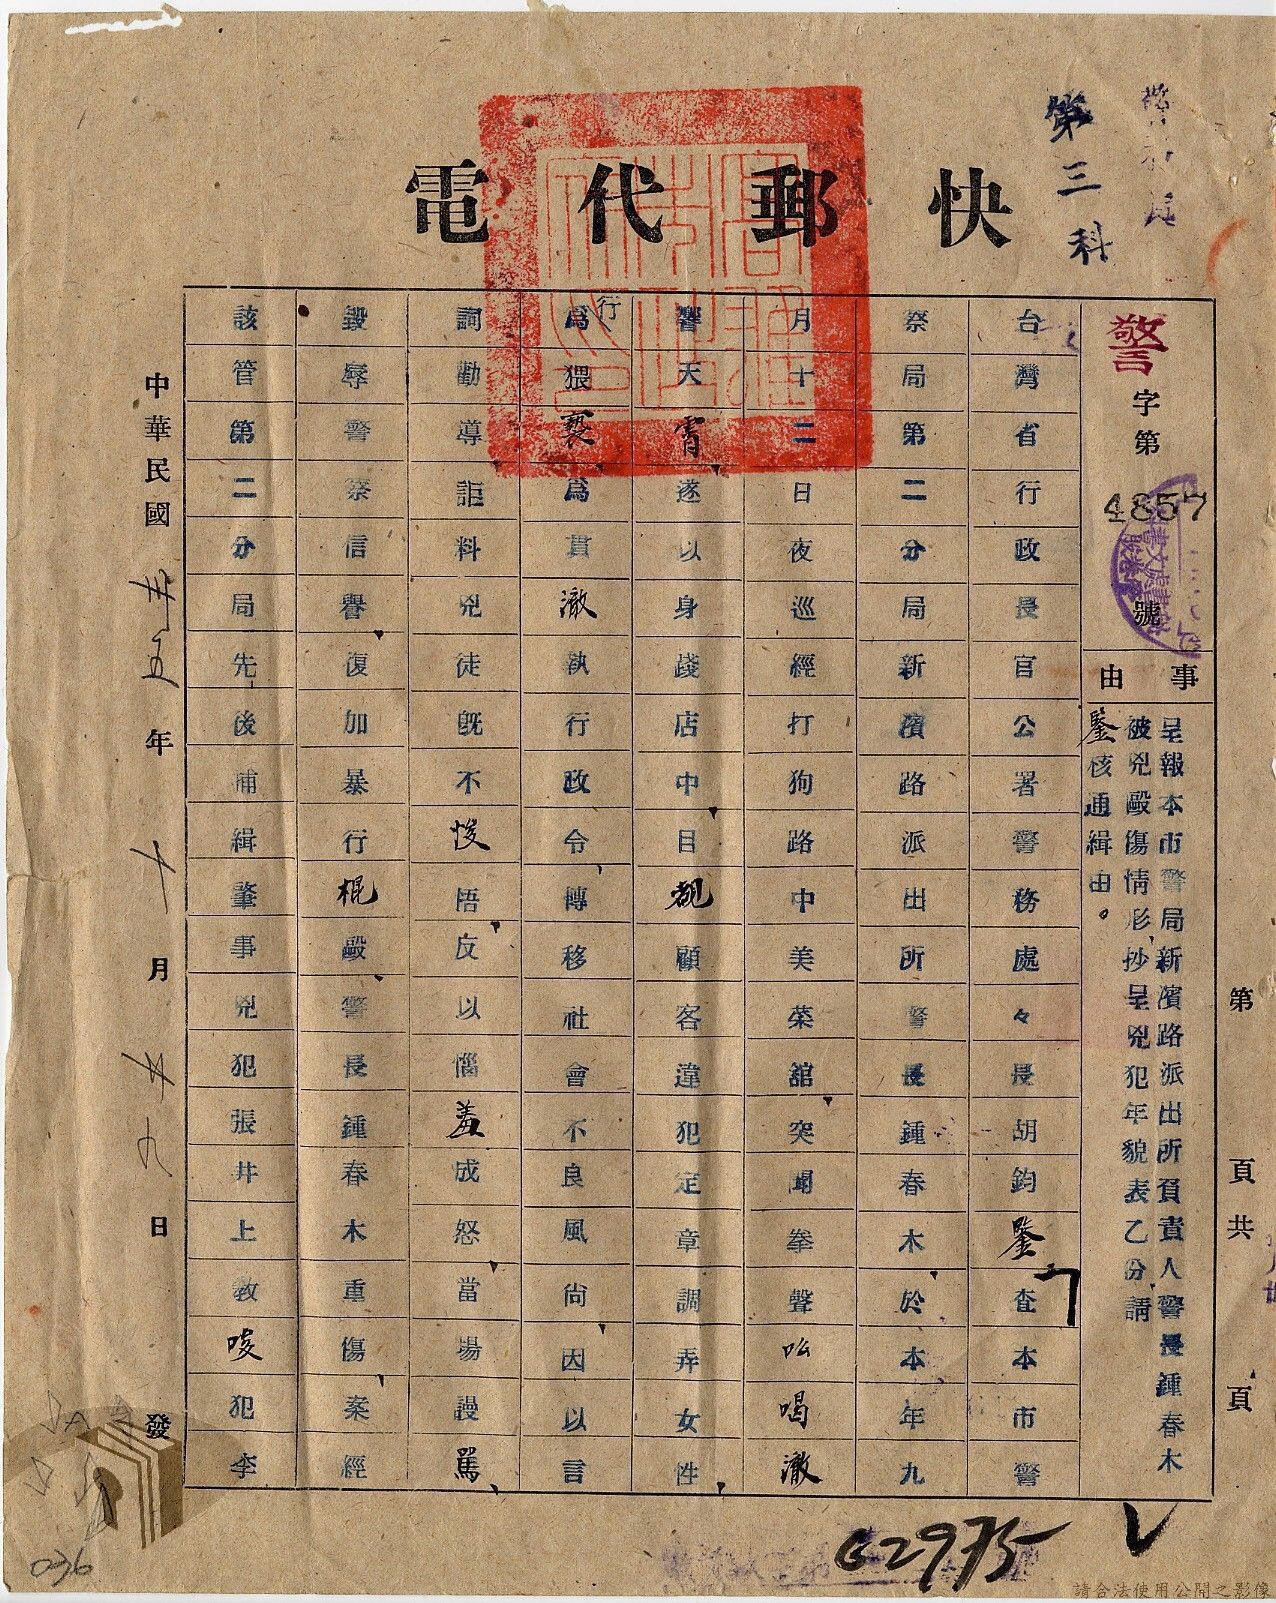 快郵代電
第三科
警字第4857號
事由
呈報本市警局新濱路派出所負責人警長鍾春木
被兇毆傷情形抄呈兇犯年貌表乙份請
鑒核通緝由。
台灣省行政長官公署警務處々長胡鈞鑒查本市警
察局第二分局新濱路派出所警長鍾春木於本年九
月十二日夜巡經打狗路中美菜館突聞拳聲吆喝澈
響天霄遂以身踐店中目覩顧客違犯定章調弄女性
行為猥褻為貫澈執行政令轉移社會不良風尚因以言
詞勸導詎料兇徒既不悛悟反以惱羞成怒當場謾罵
毀辱警察信譽復加暴行棍毆警長鍾春木重傷案經
該管第二分局先後補緝肇事兇犯張井上教唆犯李
中華民國卅五年十月廿九日發
第 頁共 頁
G2975
036
請合法使用公開之影像